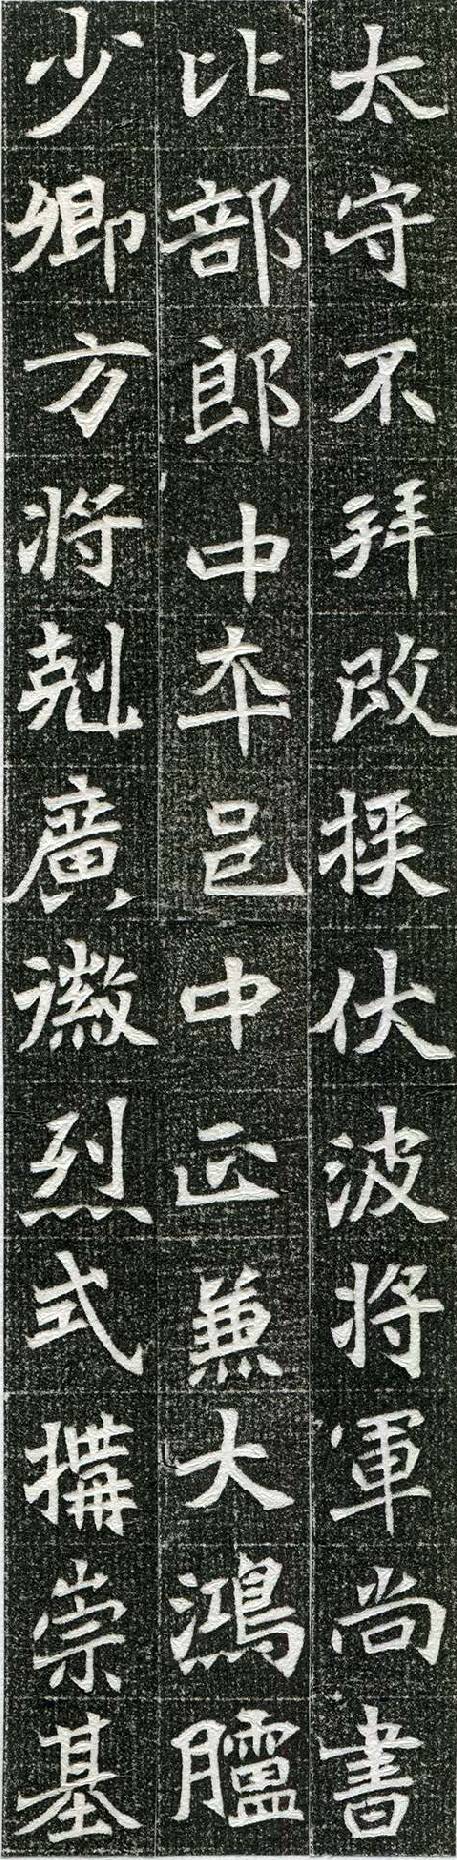 太守不拜改授伏波将軍尚書
比部郎中本邑中正兼大鴻臚
少卿方将剋廣徽烈式構崇基